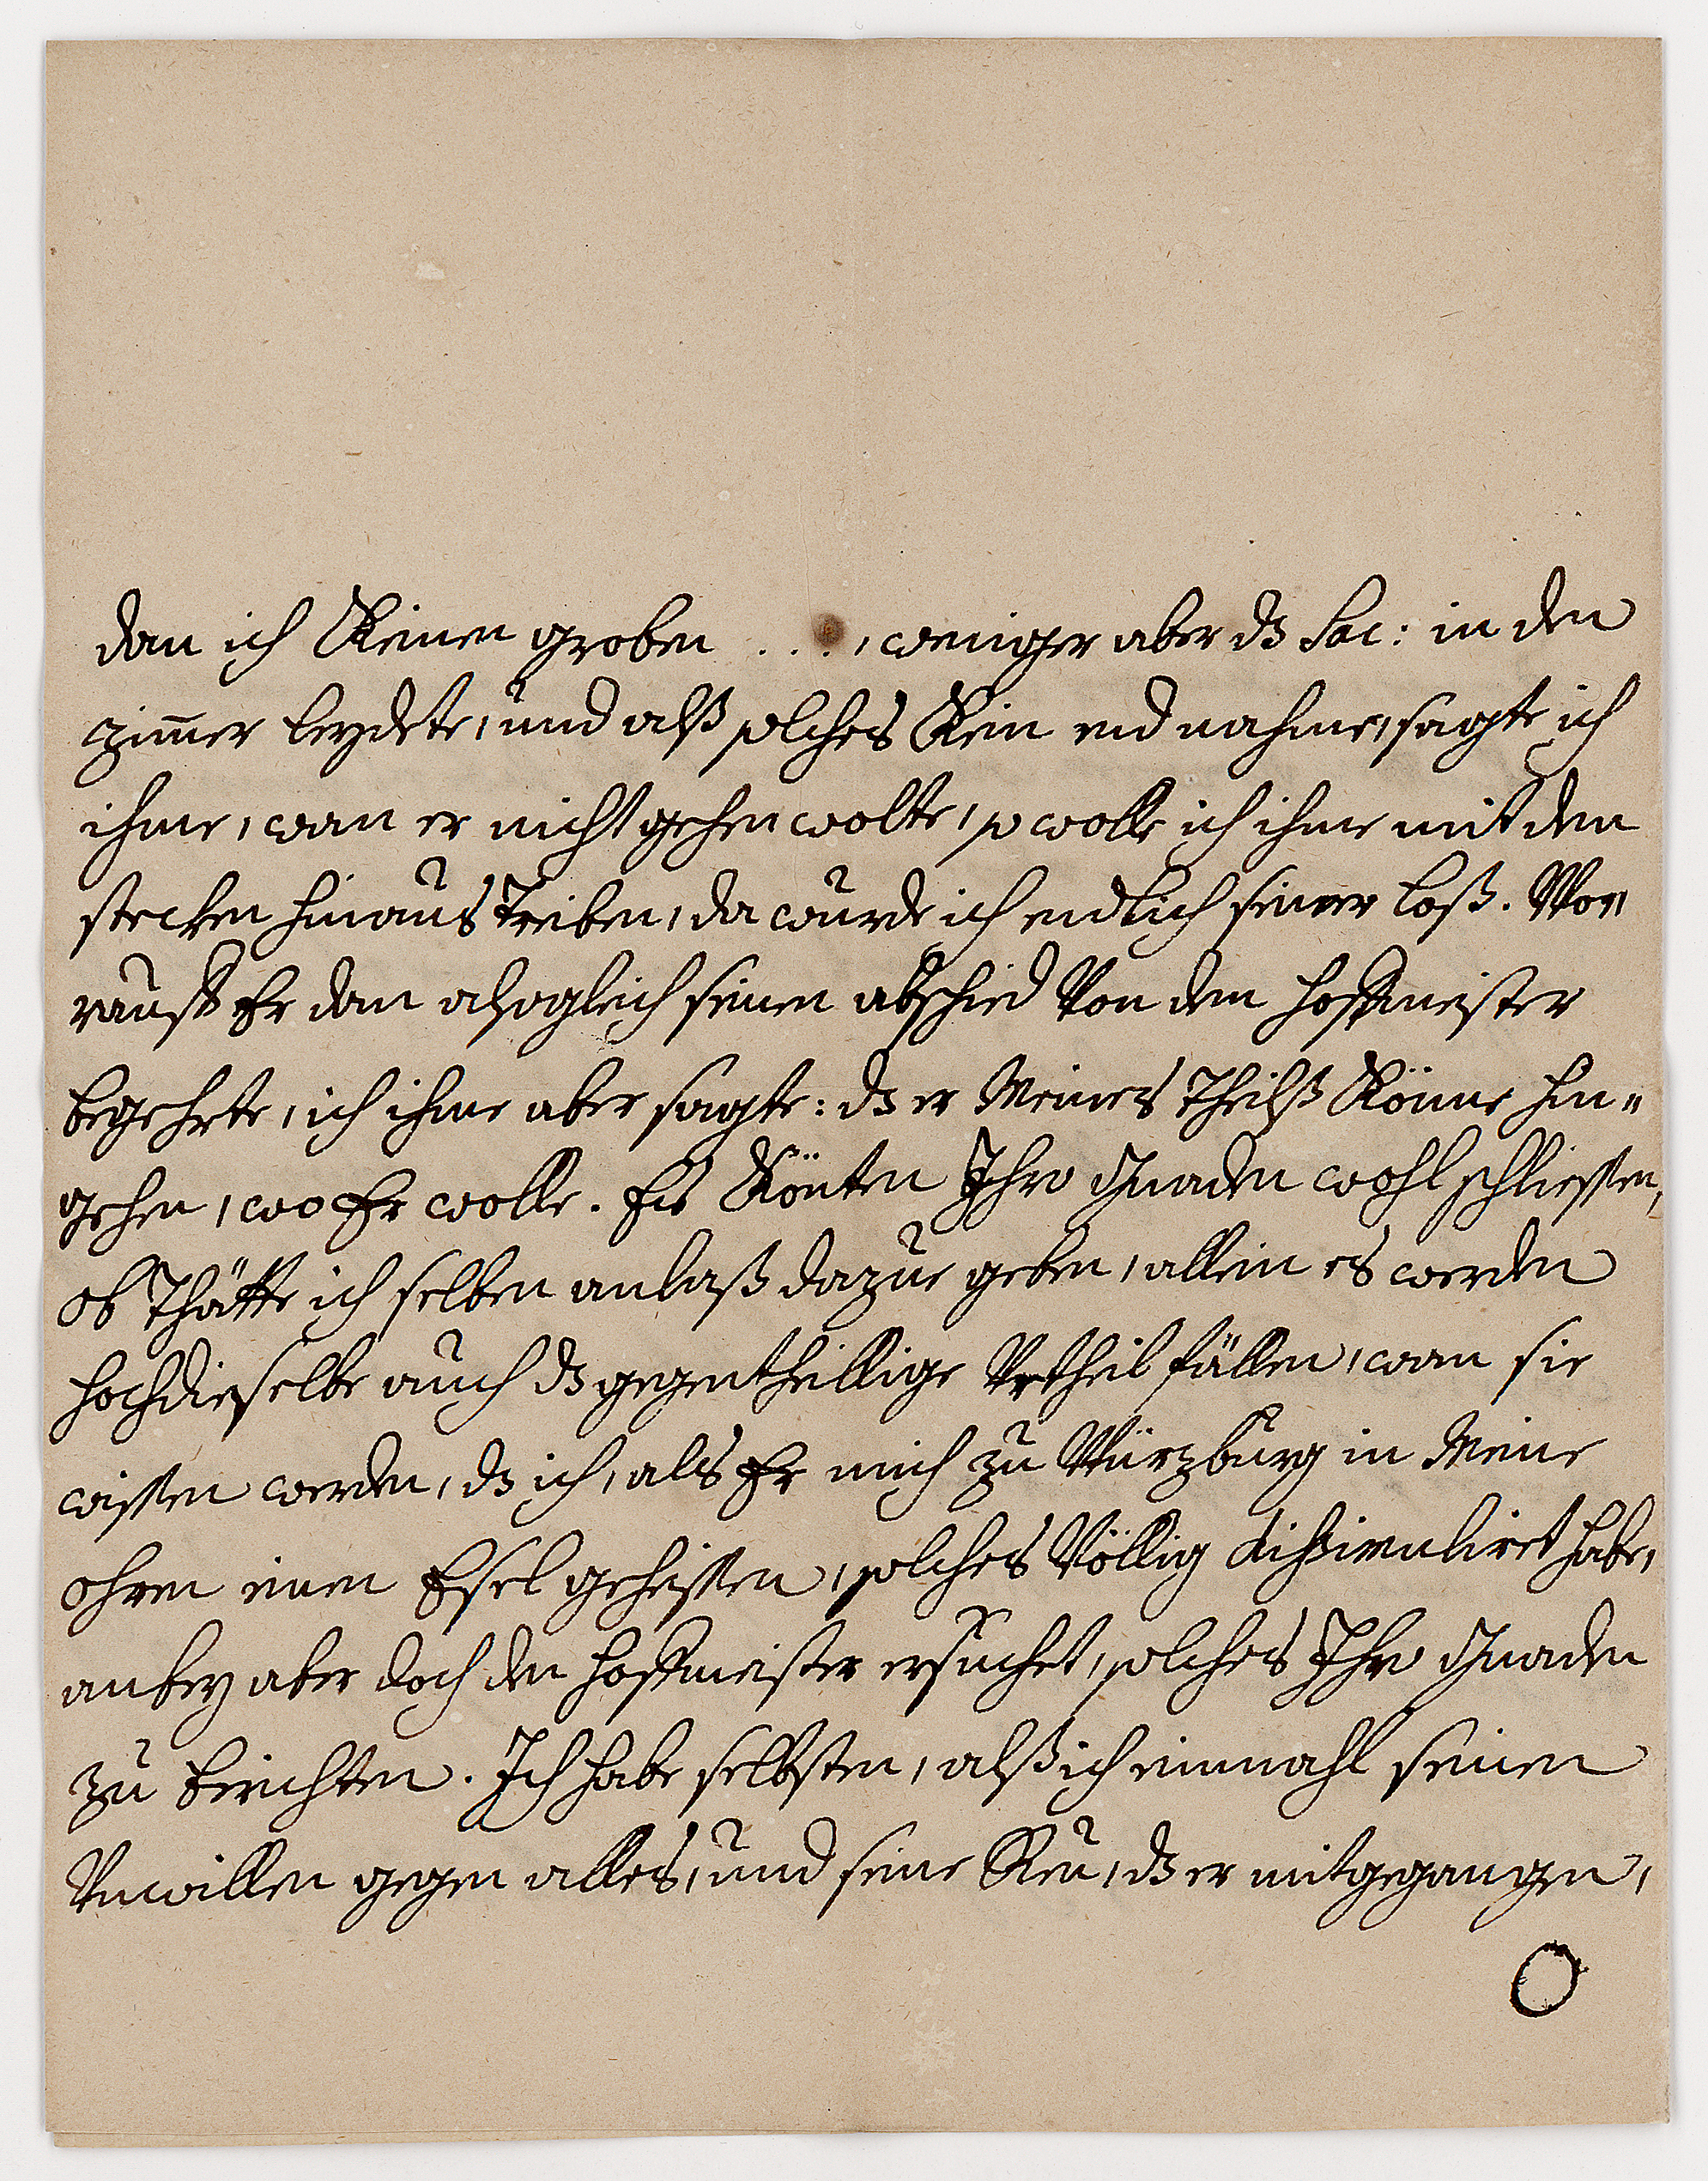 dan ich Keinen groben . . . , weniger aber dz Sac: in den
zimer leydete, und alß solches Kein end nahme, sagte ich
ihme, wan er nicht gehen wolte, so wolle ich ihme mit dem
stecken hinaus Treiben, da wurde ich endlich seiner loß. Wor
rauff Er dan alsogleich seinen abschied Von dem Hoffmeister
begehrte, ich ihme aber sagte: dz er Meines Theilß Könne hin=
gehen, wo Er wolle. Es Könten Ihro Gnaden wohl schliessen,
ob Thätte ich selben anlaß dazue geben, allein es werden
Hochdieselbe auch dz gegentheillige Vrtheil fällen, wan sie
wissen werden, dz ich, als Er mich zu Würzburg in Meine
ohren einen Esel geheissen, solches Völlig dissimuliret habe,
anbey aber doch den Hoffmeister ersuchet, solches Ihro Gnaden
zu berichten. Ich habe selbsten, alß ich einmahl seinen
Vnwillen gegen alles, und seine Reu, dz er mitgegangen,